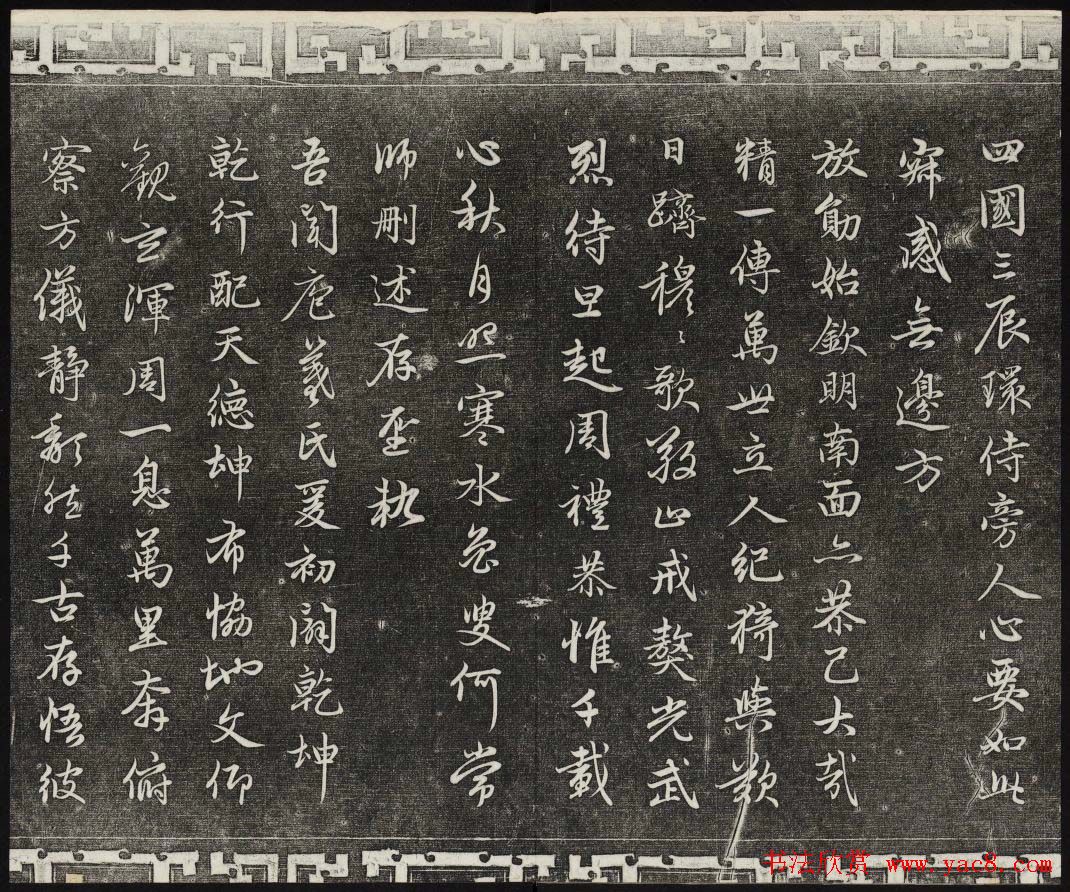 四國三辰環侍旁人心要如此
寂感無邊方
放勛始欽明南面亦恭己大哉
精一傳萬世立人紀猗與歎
日躋穆〻歌敬止戒獒光武
烈待旦起周禮恭惟千載
心秋月照寒水魯叟何常
師刪述存聖軌
吾聞庖羲氏爰初闢乾坤
乾行配天德坤布協地文仰
觀玄渾周一息萬里奔俯
察方儀靜隤然千古存悟彼
书法欣赏 www.yac8.com